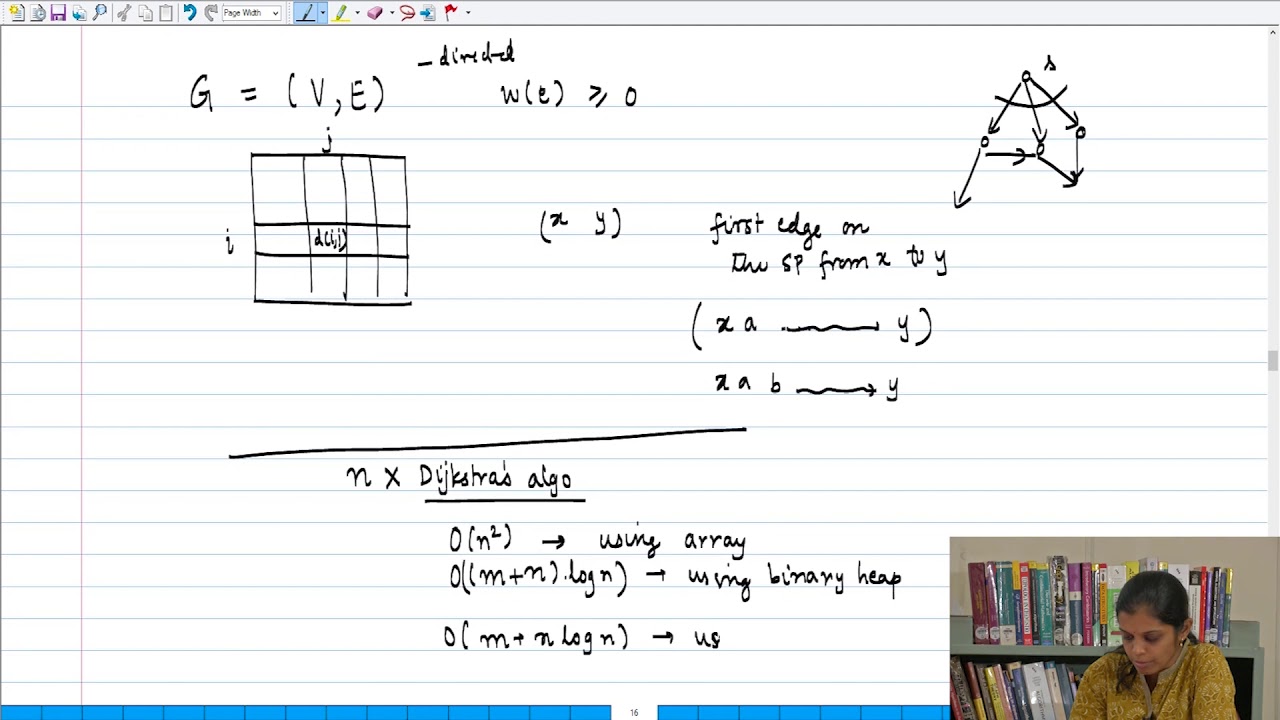 Page Width
- directed
G = (V, E) w(e) ≥ 0
s
j
i d(i,j)
(x y) first edge on
the SP from x to y
(x a y)
x a b y
n X Dijkstra's algo
O(n²) → using array
O((m+n).logn) → using binary heap
O(m+nlogn) → us
16